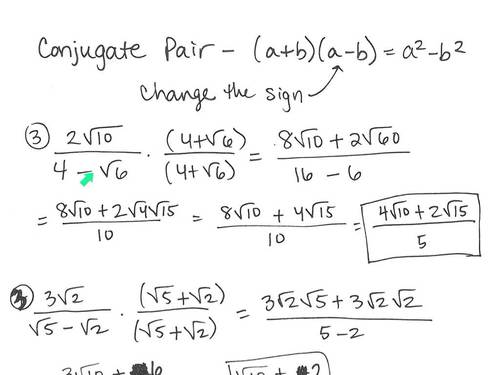 Conjugate Pair - (a+b)(a-b) = a²-b²
change the sign
③ 2√10 / 4 - √6 · (4+√6) / (4+√6) = 8√10 + 2√60 / 16 - 6
= 8√10 + 2√4√15 / 10 = 8√10 + 4√15 / 10 = 4√10 + 2√15 / 5
3√2 / √5 - √2 · (√5+√2) / (√5+√2) = 3√2√5 + 3√2√2 / 5 - 2